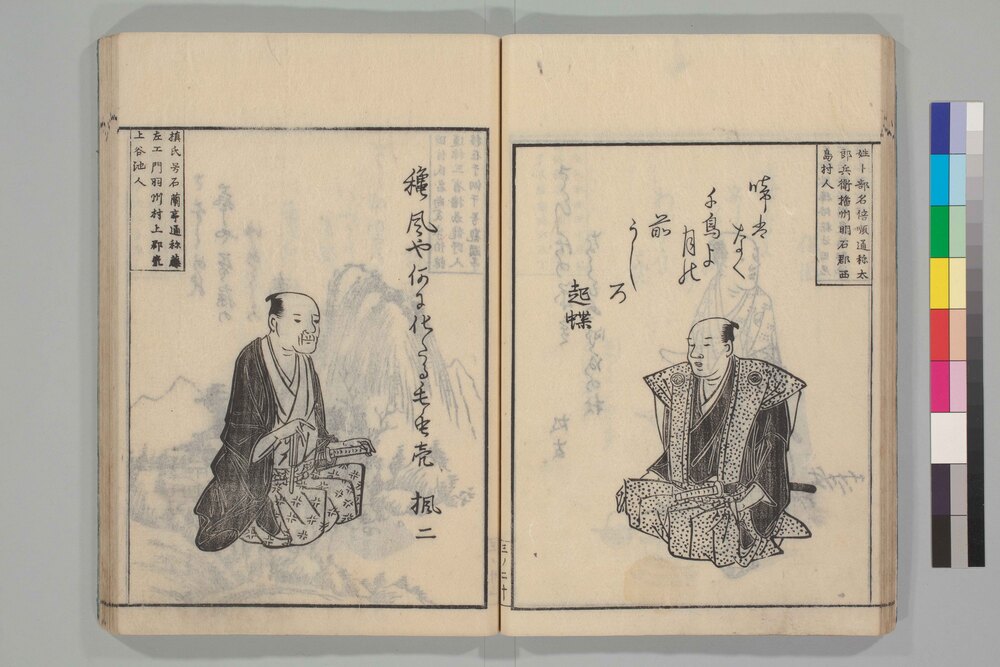 姓卜部名倍順通称太
郎兵衛播州明石郡西
島村人
啼出
なく
千鳥よ
月の
前
うしろ
起蝶
穐風や何に化たる毛虫売 楓二
槙氏号石蘭亭通称藤
左エ門羽州村上郡最
上谷池人
三ノ二十